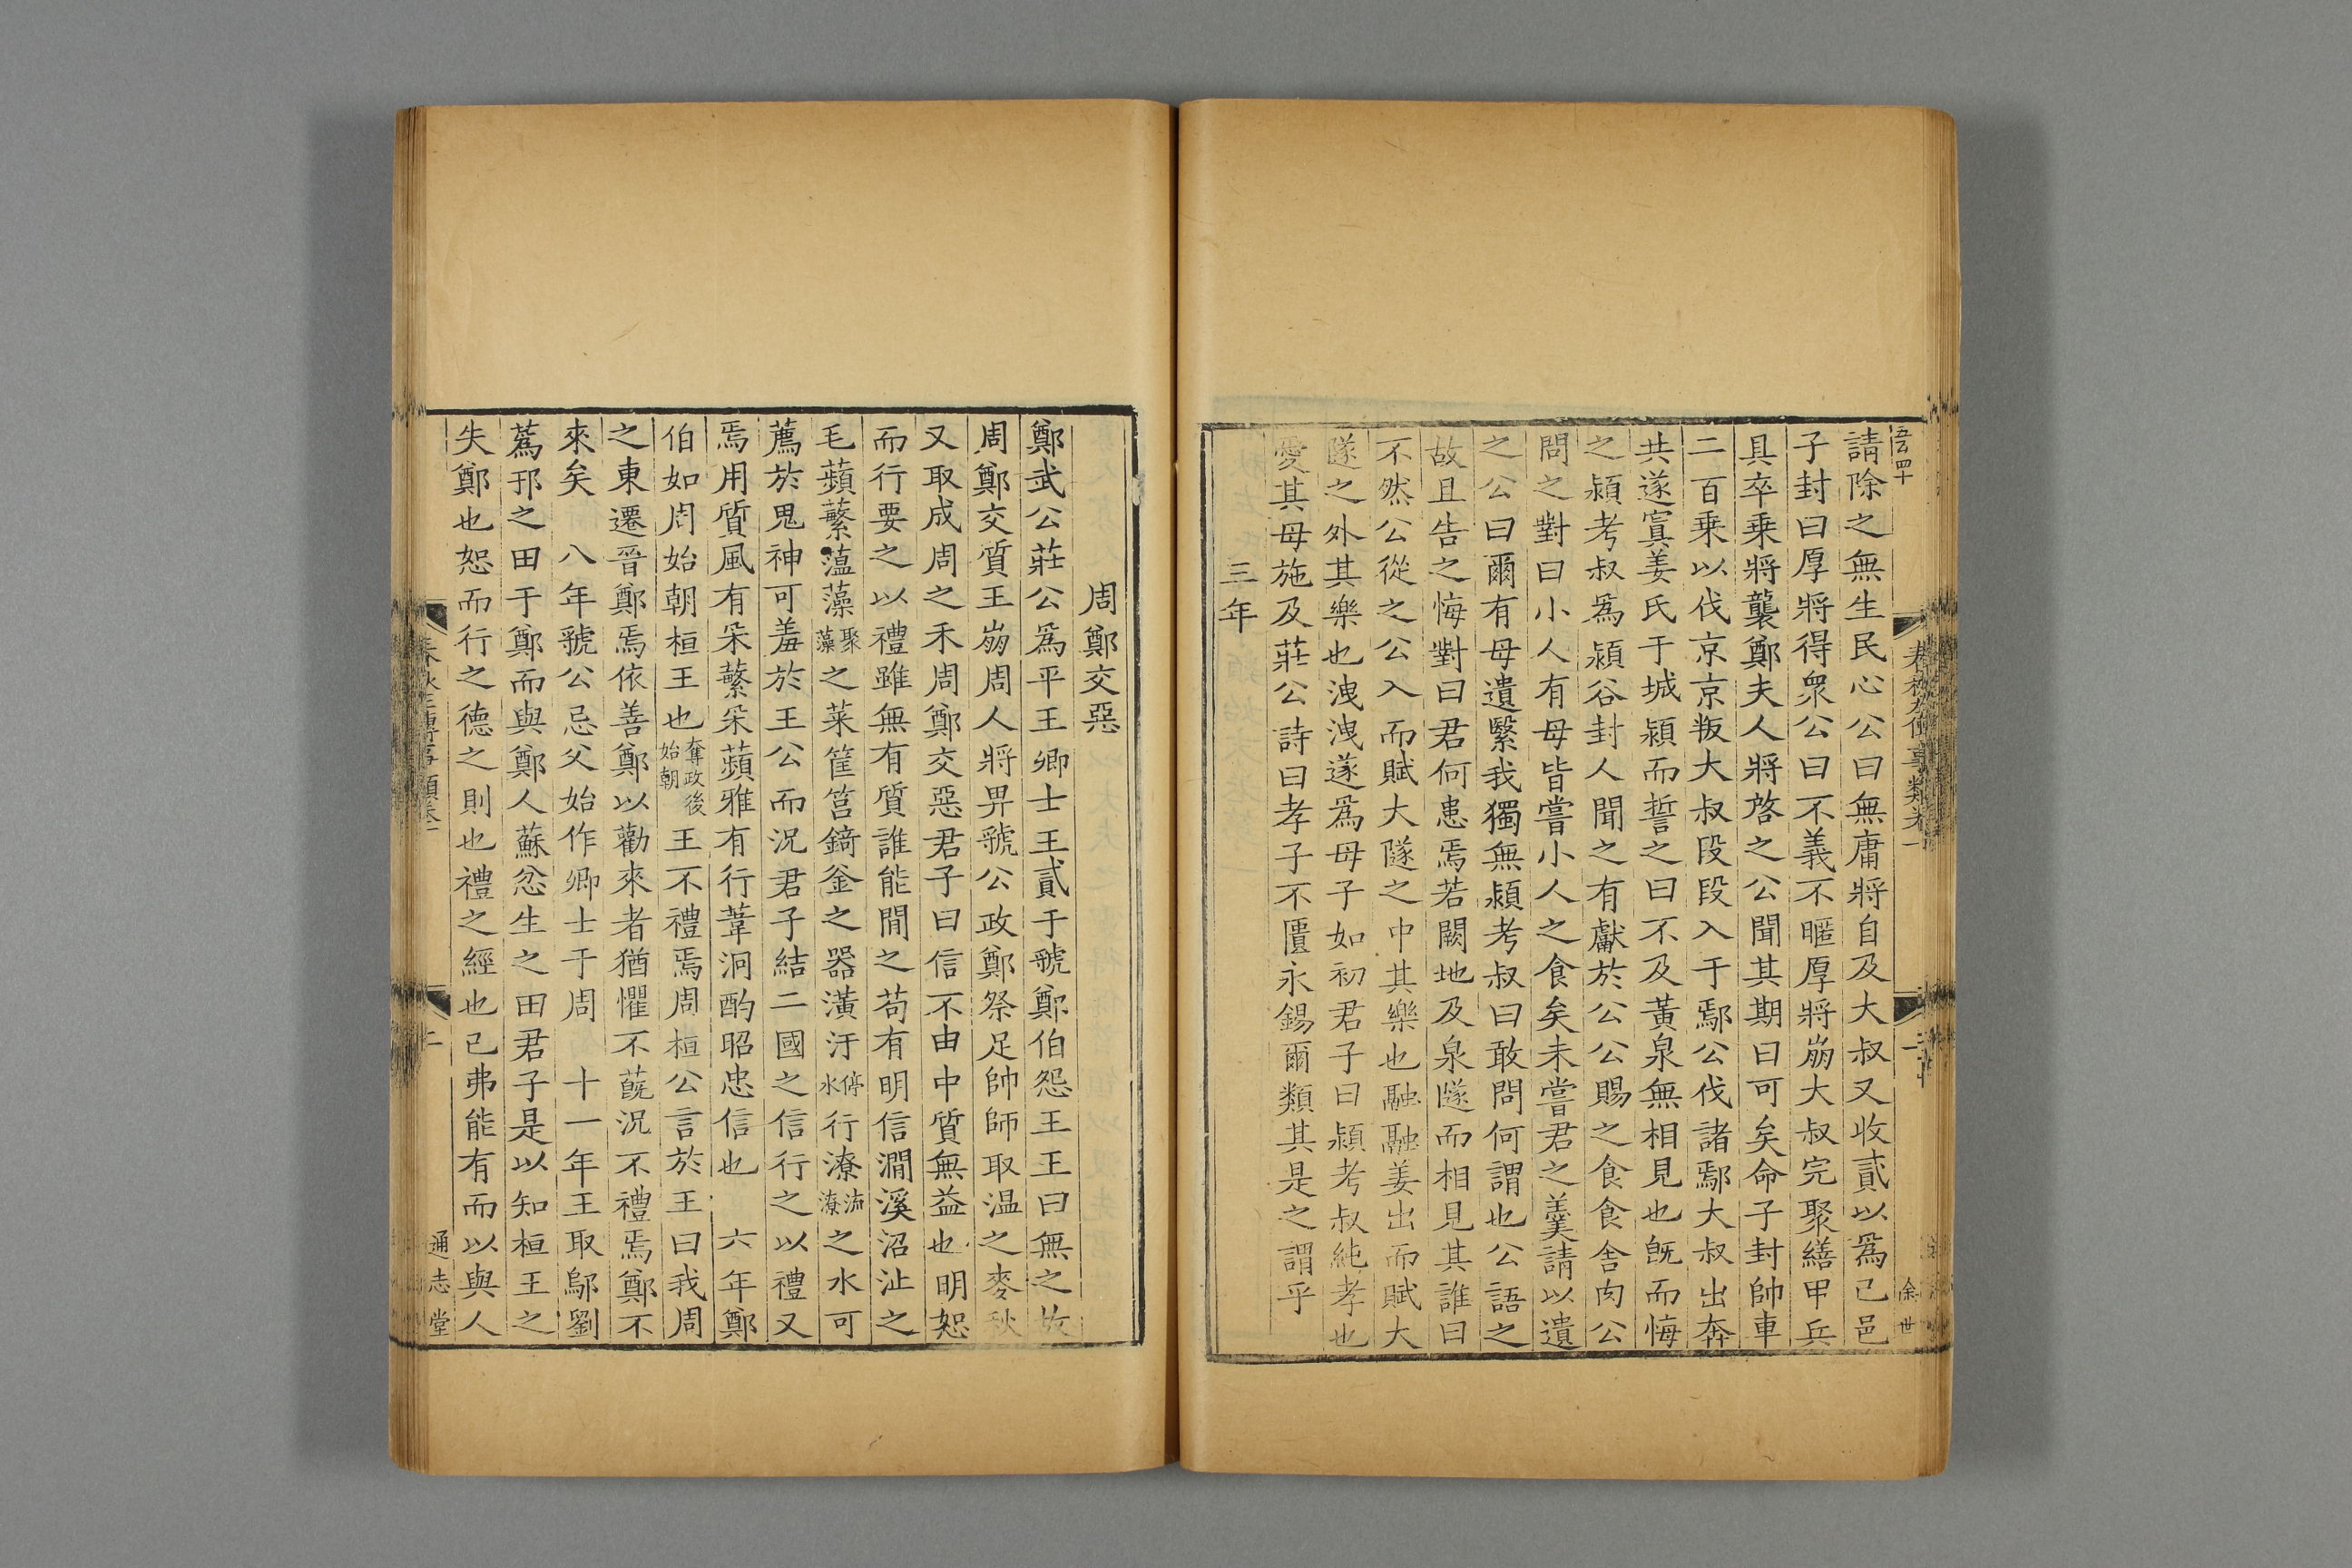 請除之無生民心公曰無庸將自及大叔又收貳以爲己邑
子封曰厚將得衆公曰不義不暱厚將崩大叔完聚繕甲兵
具卒乗將襲鄭夫人將啓之公聞其期曰可矣命子封帥車
二百乗以伐京京叛大叔段段入于鄢公伐諸鄢大叔出奔
共遂寘姜氏于城潁而誓之曰不及黃泉無相見也旣而悔
之潁考叔爲潁谷封人聞之有獻於公公賜之食食舍肉公
問之對曰小人有母皆嘗小人之食矣未嘗君之羹請以遺
之公曰爾有母遺繄我獨無潁考叔曰敢問何謂也公語之
故且告之悔對曰君何患焉若闕地及泉隧而相見其誰曰
不然公從之公入而賦大隧之中其樂也融融姜出而賦大
隧之外其樂也洩洩遂爲母子如初君子曰潁考叔純孝也
愛其母施及莊公詩曰孝子不匱永錫爾類其是之謂乎
三年
周鄭交惡
鄭武公莊公爲平王卿士王貳于虢鄭伯怨王王曰無之故
周鄭交質王崩周人將畀虢公政鄭祭足帥師取温之麥秋
又取成周之禾周鄭交惡君子曰信不由中質無益也明恕
而行要之以禮雖無有質誰能閒之苟有明信澗溪沼沚之
毛蘋蘩薀藻聚藻之菜筐筥錡釜之器潢汙停水行潦流潦之水可
薦於鬼神可羞於王公而況君子結二國之信行之以禮又
焉用質風有采蘩采蘋雅有行葦泂酌昭忠信也　六年鄭
伯如周始朝桓王也奪政後始朝王不禮焉周桓公言於王曰我周
之東遷晉鄭焉依善鄭以勸來者猶懼不蔇況不禮焉鄭不
來矣　八年虢公忌父始作卿士于周　十一年王取鄔劉
蔿邘之田于鄭而與鄭人蘇忿生之田君子是以知桓王之
失鄭也恕而行之德之則也禮之經也己弗能有而以與人
通志堂